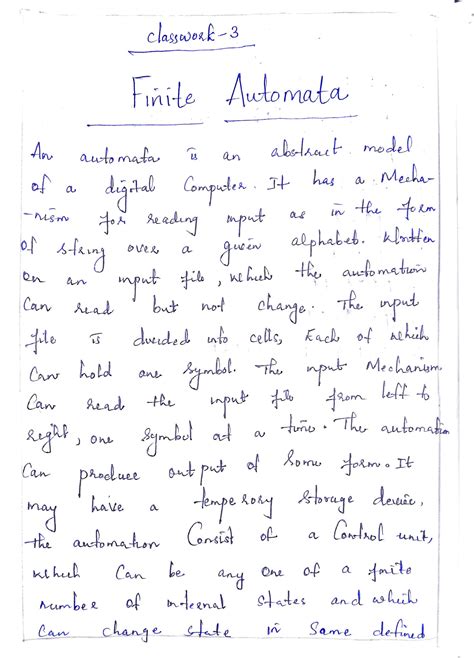 classwork-3
Finite Automata
An automata is an abstract model
of a digital Computer. It has a Mecha-
-nism for reading input as in the form
of string over a given alphabet. Written
on an input file, which the automation
Can read but not change. The input
file is divided into cells, Each of which
Can hold one symbol. The input Mechanism
Can read the input file from left to
right, one symbol at a time. The automation
Can produce output of Some form. It
may have a temperory storage device,
the automation Consist of a Control unit,
which Can be any one of a finite
number of internal states and which
Can change state in Some defined